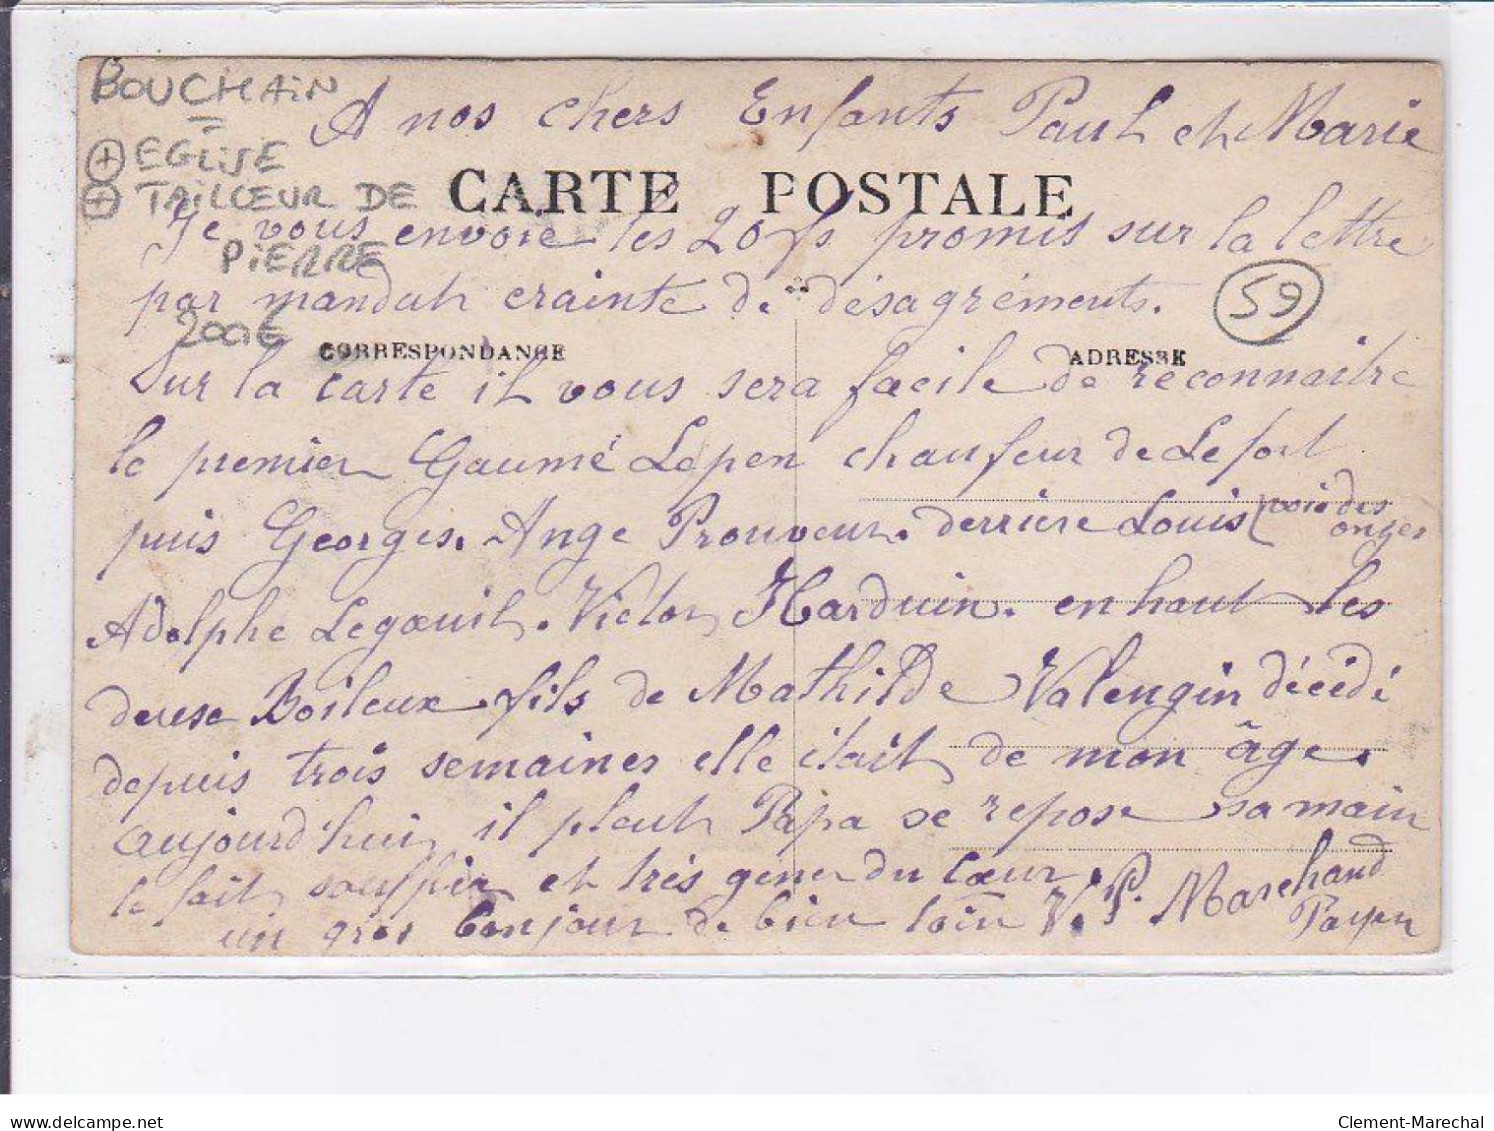 BOUCHAIN
A nos chers Enfants Paul et Marie
+ EGLISE
+ TAILLEUR DE
PIERRE
CARTE POSTALE
Je vous envoie les 20 fs promis sur la lettre
par mandat crainte de désagréments.
59
200€
CORRESPONDANCE
ADRESSE
Sur la carte il vous sera facile de reconnaitre
le premier Gaumé Lepen chaufeur de Lefort
puis Georges. Ange Prouveur. derrière Louis
Adolphe Legœuil. Victor Harduin. en haut les
Boileux fils de Mathilde Valengin décédé
depuis trois semaines elle était de mon âge.
aujourd'hui il pleut Papa se repose sa main
le fait souffrir et très gener du Cœur.
un gros bonjour de bien loin V. P. Marchand
Payen
Clement-Marechal
delcampe.net